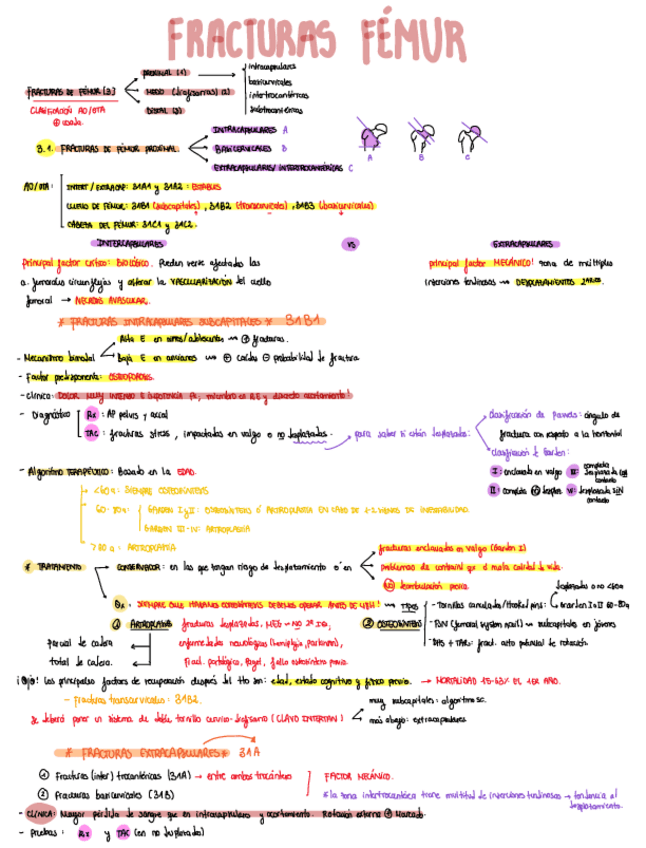 FRACTURAS FÉMUR
FRACTURAS DE FÉMUR (3)
PROXIMAL (1)
MEDIO (diafisarias) (2)
DISTAL (3)
intracapsulares
basicervicales
intertrocantéricas
subtrocantéricas
CLASIFICACIÓN AO/OTA
⊕ usada
3.1. FRACTURAS DE FÉMUR PROXIMAL
INTRACAPSULARES A
BASICERVICALES B
EXTRACAPSULARES/INTERTROCANTÉRICAS C
A B C
AO/OTA:
INTERT/EXTRACAP: 31A1 y 31A2: ESTABLES
CUELLO DE FÉMUR: 31B1 (subcapitales), 31B2 (transcervicales), 31B3 (basicervicales)
CABEZA DEL FÉMUR: 31C1 y 31C2.
INTERCAPSULARES VS EXTRACAPSULARES
Principal factor crítico: BIOLÓGICO. Pueden verse afectadas las
a. femorales circunflejas y alterar la VASCULARIZACIÓN del cuello
femoral → NECROSIS AVASCULAR.
principal factor MECÁNICO! zona de múltiples
inserciones tendinosas → DESPLAZAMIENTOS 2ARIOS.
* FRACTURAS INTRACAPSULARES SUBCAPITALES * 31B1
- Mecanismo bimodal
Alta E en niños/adolescentes → ⊕ fracturas.
Baja E en ancianos → ⊕ caídas ⊖ probabilidad de fractura
- Factor predisponente: OSTEOPOROSIS.
- Clínica: DOLOR MUY INTENSO E impotencia Fx, miembro en RE y discreto acortamiento!
- Diagnóstico
Rx: AP pelvis y axial
TAC: fracturas stress, impactadas en valgo o no desplazadas.
para saber si están desplazadas:
clasificación de Pauwels: ángulo de
fractura con respecto a la horizontal
clasificación de Garden:
I: enclavada en valgo III: completa desplazada con contacto
II: completa no desplaz IV: desplazada SIN contacto
- Algoritmo TERAPÉUTICO: Basado en la EDAD.
<60 a: SIEMPRE OSTEOSÍNTESIS
60-80a:
GARDEN I y II: OSTEOSÍNTESIS Ó ARTROPLASTIA EN CASO DE
GARDEN III-IV: ARTROPLASTIA
>80 a = ARTROPLASTIA
* TRATAMIENTO
CONSERVADOR: en las que tengan riesgo de desplazamiento o en
fracturas enclavadas en valgo (Garden I)
problemas de comorbilidad y mala calidad de vida.
NO deambulación previa.
Qx. SIEMPRE QUE HAGAMOS OSTEOSÍNTESIS DEBEMOS OPERAR ANTES DE 48H! → TIPOS
① ARTROPLASTIA
Parcial de cadera
total de cadera.
fracturas desplazadas,
enfermedades neurológicas (hemiplejia, parkinson),
Fract. patológica, Paget, fallo osteosíntesis previa.
② OSTEOSÍNTESIS
- Tornillos canulados/Hooked pins:
desplazadas o no <60a
Garden I o II 60-80a
- FNS (femoral system nail) → subcapitales en jóvenes
- DHS + TAR: fract. alto potencial de rotación.
¡Ojo! Los principales factores de recuperación después del tto son: edad, estado cognitivo y físico previo. → MORTALIDAD EL 1ER AÑO.
- Fracturas transcervicales: 31B2.
Se deberá poner un sistema de doble tornillo cérvico-diafisario (CLAVO INTERTAN)
muy subcapitales: algoritmo sc.
más abajo: extracapsulares
* FRACTURAS EXTRACAPSULARES * 31A
① Fracturas (inter) trocantéricas (31A) → entre ambos trocánteres
② Fracturas basicervicales (31B)
FACTOR MECÁNICO.
* la zona intertrocantérica tiene multitud de inserciones tendinosas → tendencia al
desplazamiento.
- CLÍNICA: Mayor pérdida de sangre que en intracapsulares y acortamiento. Rotación externa ⊕ Marcada.
- Pruebas: Rx y TAC (en no desplazadas)